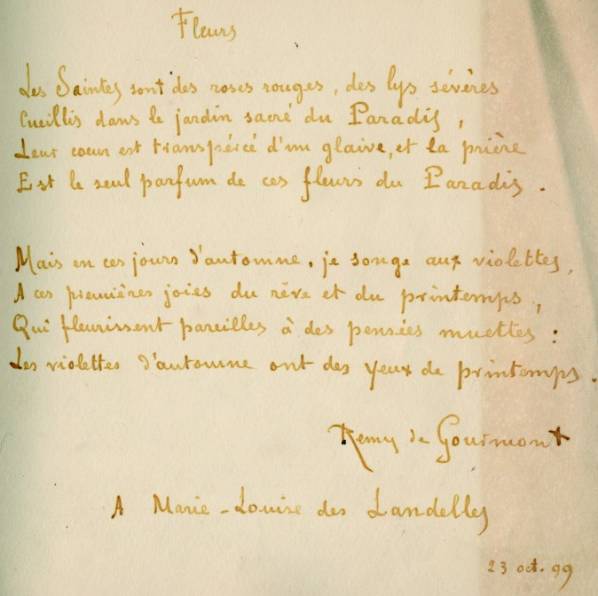 Fleurs
Les Saintes sont des roses rouges, des lys sévères
Cueillis dans le jardin sacré du Paradis,
Leur cœur est transpércé d'un glaive, et la prière
Est le seul parfum de ces fleurs du Paradis.
Mais en ces jours d'automne, je songe aux violettes,
A ces premières joies du rêve et du printemps,
Qui fleurissent pareilles à des pensées muettes :
Les violettes d'automne ont des yeux de printemps.
Remy de Gourmont
A Marie-Louise des Landelles
23 oct. 99